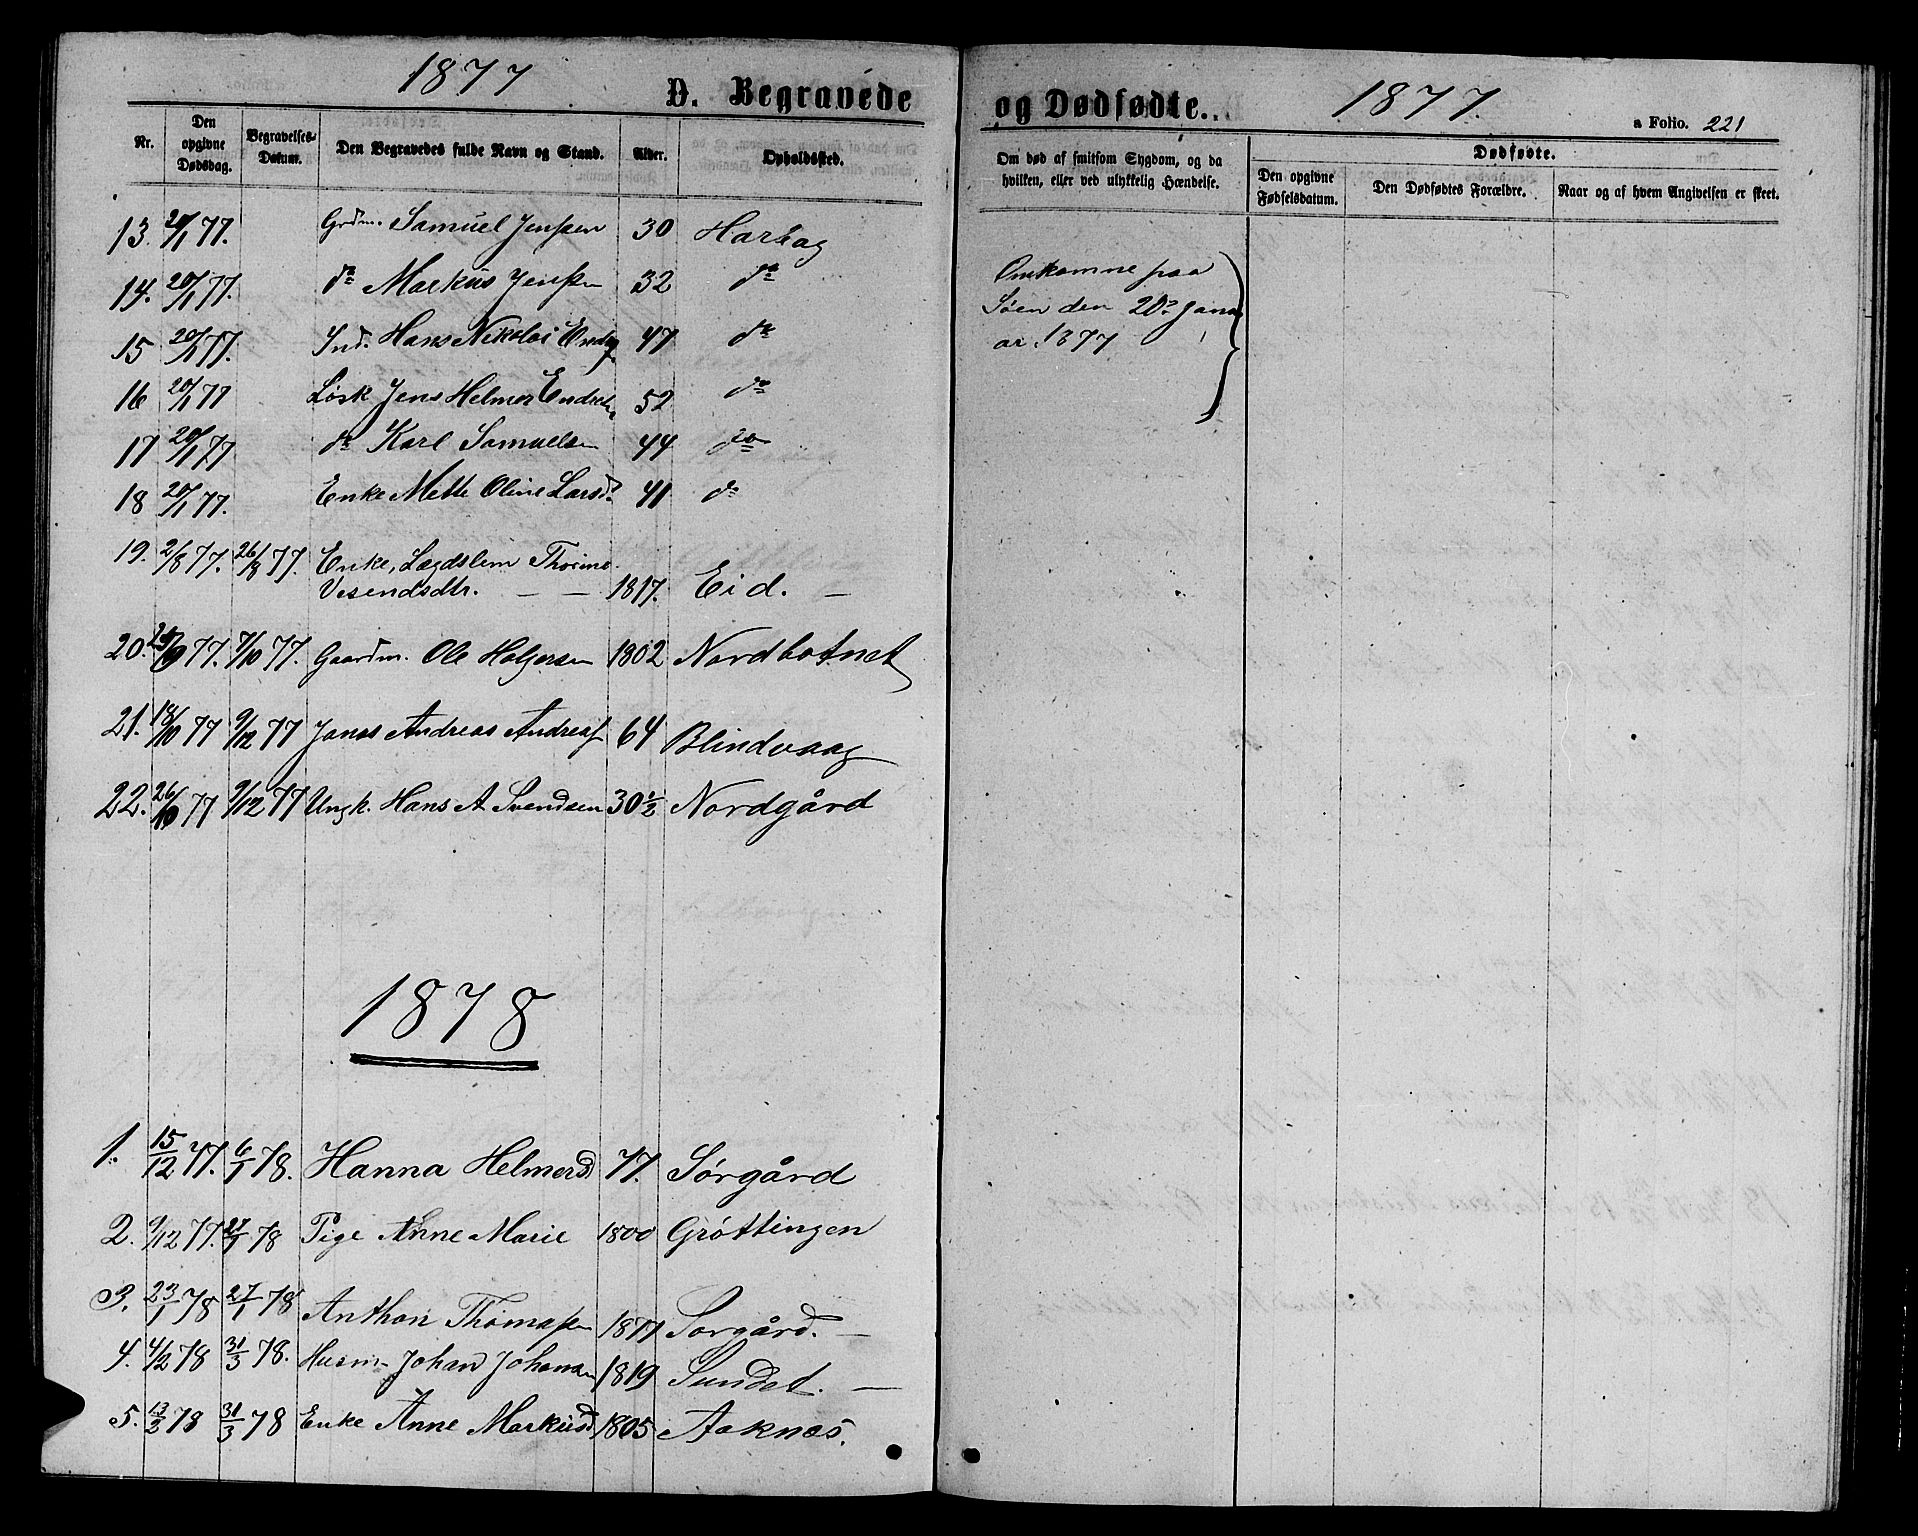 1877
D. Begravede
og Dødfødte.
1877.
a Folio. 221
Nr. Den opgivne Dødsdag. Begravelses-Datum. Den Begravedes fulde Navn og Stand. Alder. Opholdssted.
Om død af smitsom Sygdom, og da hvilken, eller ved ulykkelig Hændelse. Dødfødte. Den opgivne Fødselsdatum. Den Dødfødtes Forældre. Naar og af hvem Angivelsen er skeet.
13. 20/1 77. Grdm. Samuel Jenssen 30
14. 20/1 77. do Markus Jenssen 32 do
15 20/1 77. Ind. Hans Nikolai 47 do
16 20/1 77 Jens Helmer 52 do
17 20/1 77 do Karl Samuelsen 44 do
18 20/1 77. Enke Mette Oline Larsd. 41 do
Omkomne paa
Søen den 20de Janu
ar 1877
19. 2/8 77. 26/8 77. Enke, Lægdslem
1817. Eid. —
20. 77. 7/10 77. Gaardm. Ole Holgersen 1802 Nordbotnet
21. 18/10 77 9/12 77 Andreas 64 Blindvaag
22. 26/10 77 9/12 77 Ungk. Hans A Svendsen 30 1/2 Nordgård
1878
1. 15/12 77. 6/1 78. Hanna Helmersd 77. Sørgård
2. 9/12 77. 27/1 78 Pige Anne Marie 1800 Grøttingen
3. 23/1 78 27/1 78 Anthon Thomassen 1877 Sørgård. —
4. 4/2 78 31/3 78. Husm. Johan Johansen 1819 Sundet. —
5. 13/2 78 31/3 78 Enke Anne Markusd 1805 Aaknæs.